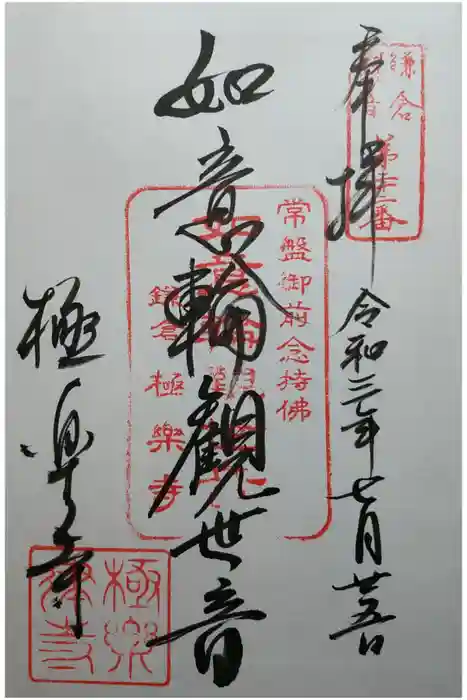 奉拝
令和三年七月廿五日
如意輪觀世音
極楽寺
鎌倉
第廿二番
常盤御前念持佛
鎌倉極樂寺
極樂
寺